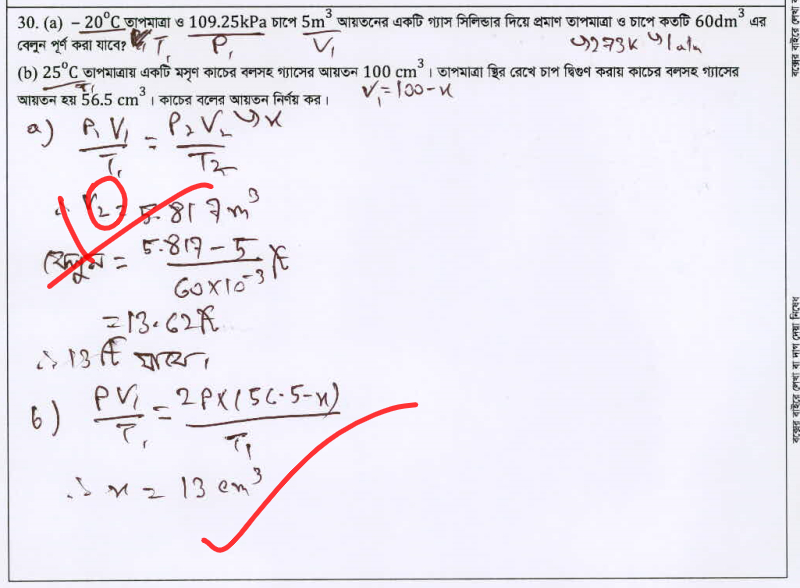 30. (a) – 20°C তাপমাত্রা ও 109.25kPa চাপে 5m³ আয়তনের একটি গ্যাস সিলিন্ডার দিয়ে প্রমাণ তাপমাত্রা ও চাপে কতটি 60dm³ এর
বেলুন পূর্ণ করা যাবে? T₁ P₁ V₁ ↳273K ↳1atm
(b) 25°C তাপমাত্রায় একটি মসৃণ কাচের বলসহ গ্যাসের আয়তন 100 cm³ । তাপমাত্রা স্থির রেখে চাপ দ্বিগুণ করায় কাচের বলসহ গ্যাসের
T₁ V₁ = 100 - x
আয়তন হয় 56.5 cm³ । কাচের বলের আয়তন নির্ণয় কর।
↳x
a) P₁V₁/T₁ = P₂V₂/T₂
∴ V₂ = 5.817m³
0
বেলুন = 5.817 - 5/60×10⁻³ টি
= 13.62 টি
∴ 13 টি যাবে।
b) PV₁/T₁ = 2P×(56.5-x)/T₁
∴ x = 13 cm³
বক্সের বাইরে লেখা বা দাগ দেয়া নিষেধ